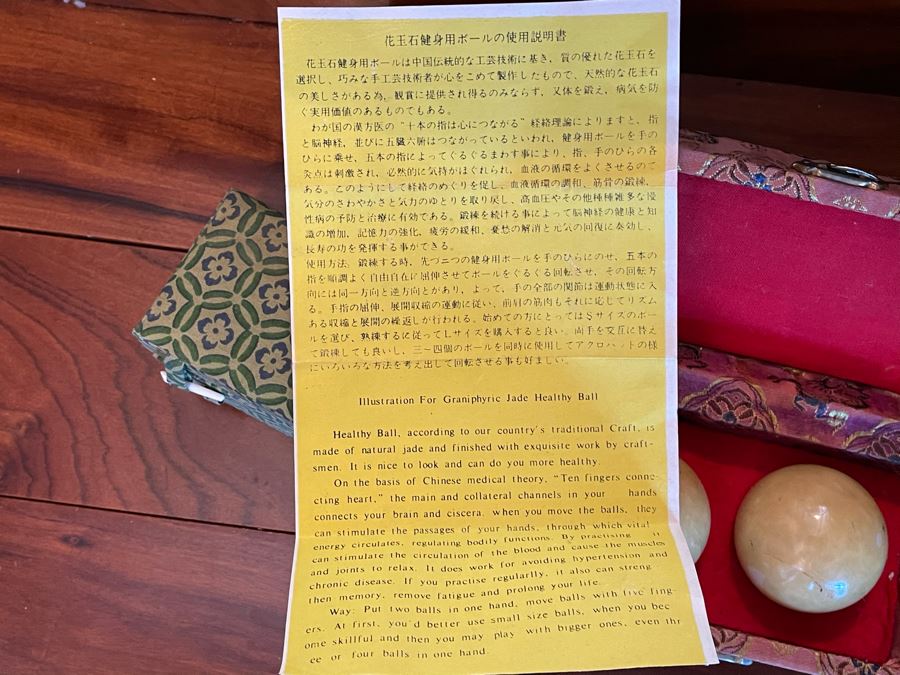 花玉石健身用ボールの使用説明書
花玉石健身用ボールは中国伝統的な工芸技術に基き，質の優れた花玉石を
選択し、巧みな手工芸技術者が心をこめて製作したもので、天然的な花玉石
の美しさがある為，観賞に提供され得るのみならず，又体を鍛え，病気を防
ぐ実用価値のあるものでもある。
わが国の漢方医の“十本の指は心につながる”経絡理論によりますと，指
と脳神経，並びに五臓六腑はつながっているといわれ，健身用ボールを手の
ひらに乗せ，五本の指によってぐるぐるまわす事により、指，手のひらの各
灸点は刺激され，必然的に気持がほぐれられ，血液の循環をよくさせるので
ある。このようにして経絡のめぐりを促し、血液循環の調和，筋骨の鍛練，
気分のさわやかさと気力のゆとりを取り戻し，高血圧やその他種種雑多な慢
性病の予防と治療に有効である。鍛練を続ける事によって脳神経の健康と知
識の増加，記憶力の強化，疲労の緩和，憂愁の解消と元気の回復に奏効し，
長寿の功を発揮する事ができる。
使用方法，鍛練する時，先づ二つの健身用ボールを手のひらにのせ，五本の
指を順調よく自由自在に屈伸させてボールをぐるぐる回転させ，その回転方
向には同一方向と逆方向とがあり，よって，手の全部の関節は運動状態に入
る。手指の屈伸，展開収縮の運動に従い，前肩の筋肉もそれに応じてリズム
ある収縮と展開の繰返しが行われる。始めての方にとってはSサイズのボー
ルを選び，熟練するに従ってLサイズを購入すると良い。両手を交互に替え
て鍛練しても良いし，三〜四個のボールを同時に使用してアクロバットの様
にいろいろな方法を考え出して回転させる事も好ましい。
Illustration For Graniphyric Jade Healthy Ball
Healthy Ball, according to our country's traditional Craft, is
made of natural jade and finished with exquisite work by craft-
smen. It is nice to look and can do you more healthy.
On the basis of Chinese medical theory, “Ten fingers conne-
cting heart,” the main and collateral channels in your hands
connects your brain and ciscera. when you move the balls, they
can stimulate the passages of your hands, through which vital
energy circulates, regulating bodily functions. By practising it
can stimulate the circulation of the blood and cause the muscles
and joints to relax. It does work for avoiding hypertension and
chronic disease. If you practise regularlly, it also can streng
then memory, remove fatigue and prolong your life.
Way: Put two balls in one hand, move balls with five fing-
ers. At first, you'd better use small size balls, when you bec
ome skillful and then you may play with bigger ones, even thr
ee or four balls in one hand.